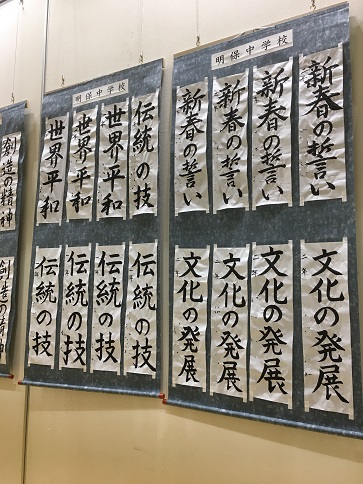 明保中学校
新春の誓い
新春の誓い
新春の誓い
新春の誓い
文化の発展
二年
文化の発展
二年
文化の発展
二年
文化の発展
二年
明保中学校
伝統の技
世界平和
世界平和
世界平和
伝統の技
伝統の技
伝統の技
伝統の技
創造の精神
創造の精神